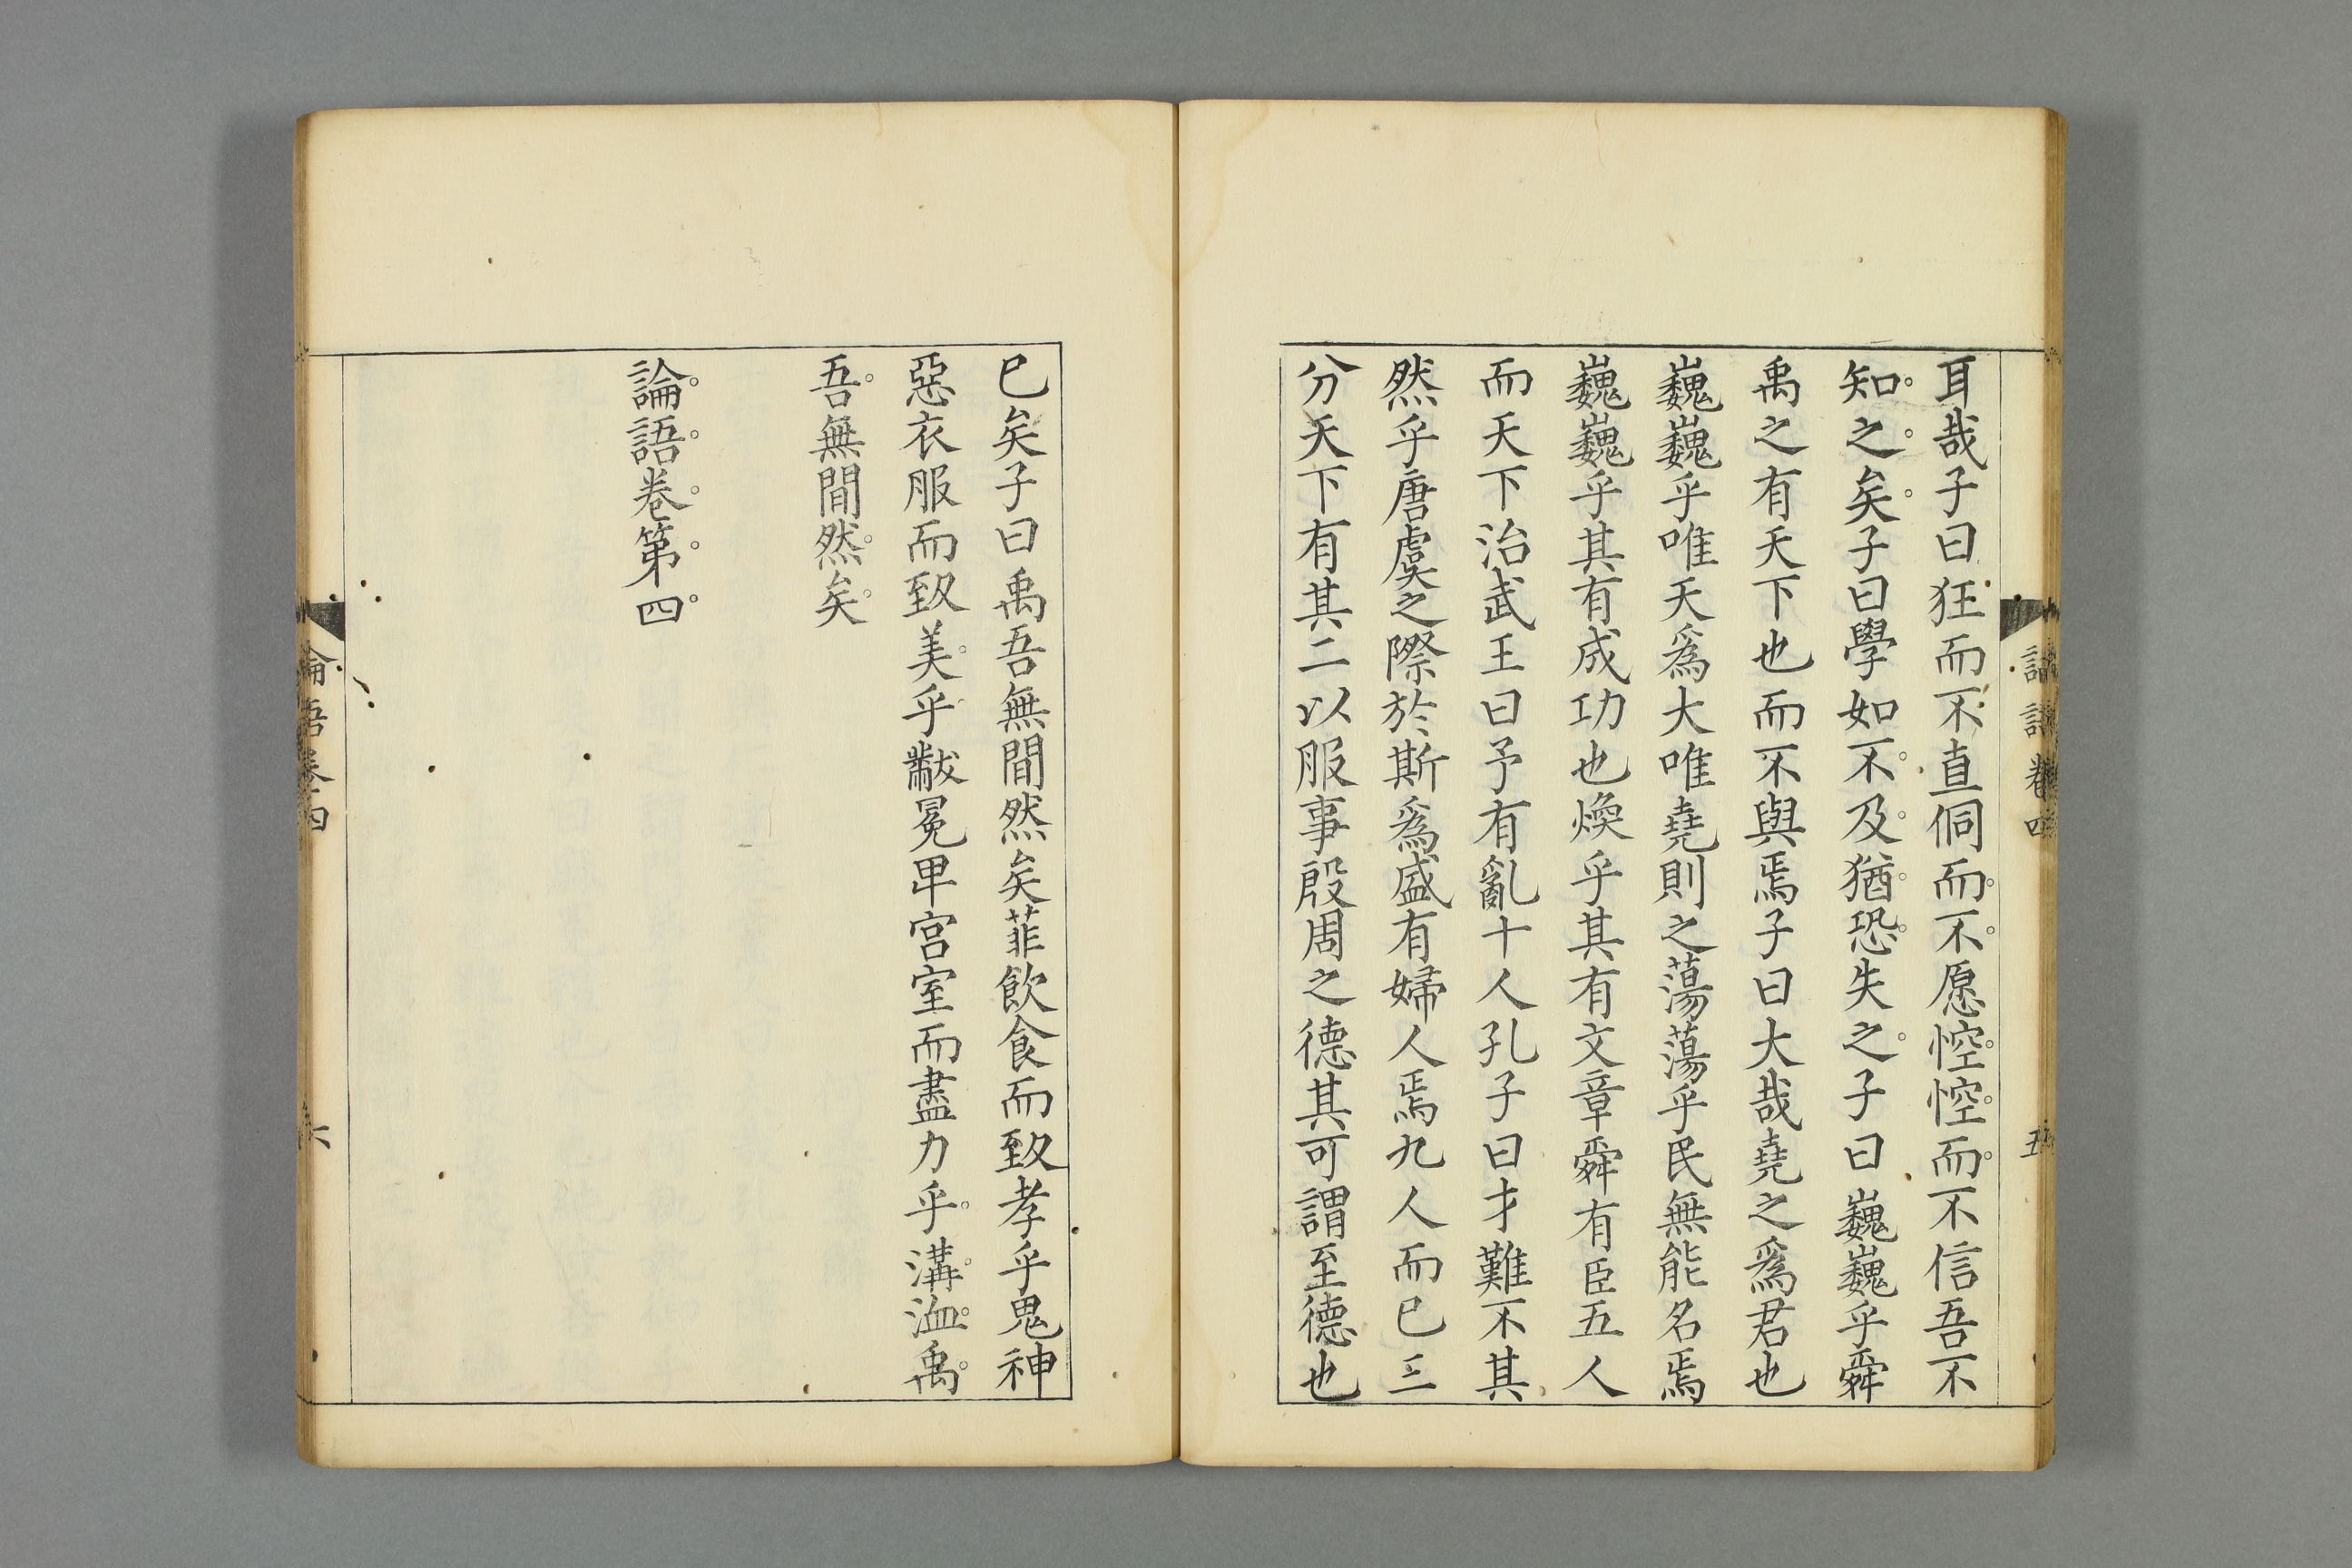 耳哉子曰狂而不直侗而不愿悾悾而不信吾不
知之矣子曰學如不及猶恐失之子曰巍巍乎舜
禹之有天下也而不與焉子曰大哉堯之爲君也
巍巍乎唯天爲大唯堯則之蕩蕩乎民無能名焉
巍巍乎其有成功也煥乎其有文章舜有臣五人
而天下治武王曰予有亂十人孔子曰才難不其
然乎唐虞之際於斯爲盛有婦人焉九人而已三
分天下有其二以服事殷周之德其可謂至德也
已矣子曰禹吾無間然矣菲飮食而致孝乎鬼神
惡衣服而致美乎黻冕卑宮室而盡力乎溝洫禹
吾無間然矣
論語卷第四
論語卷四
六